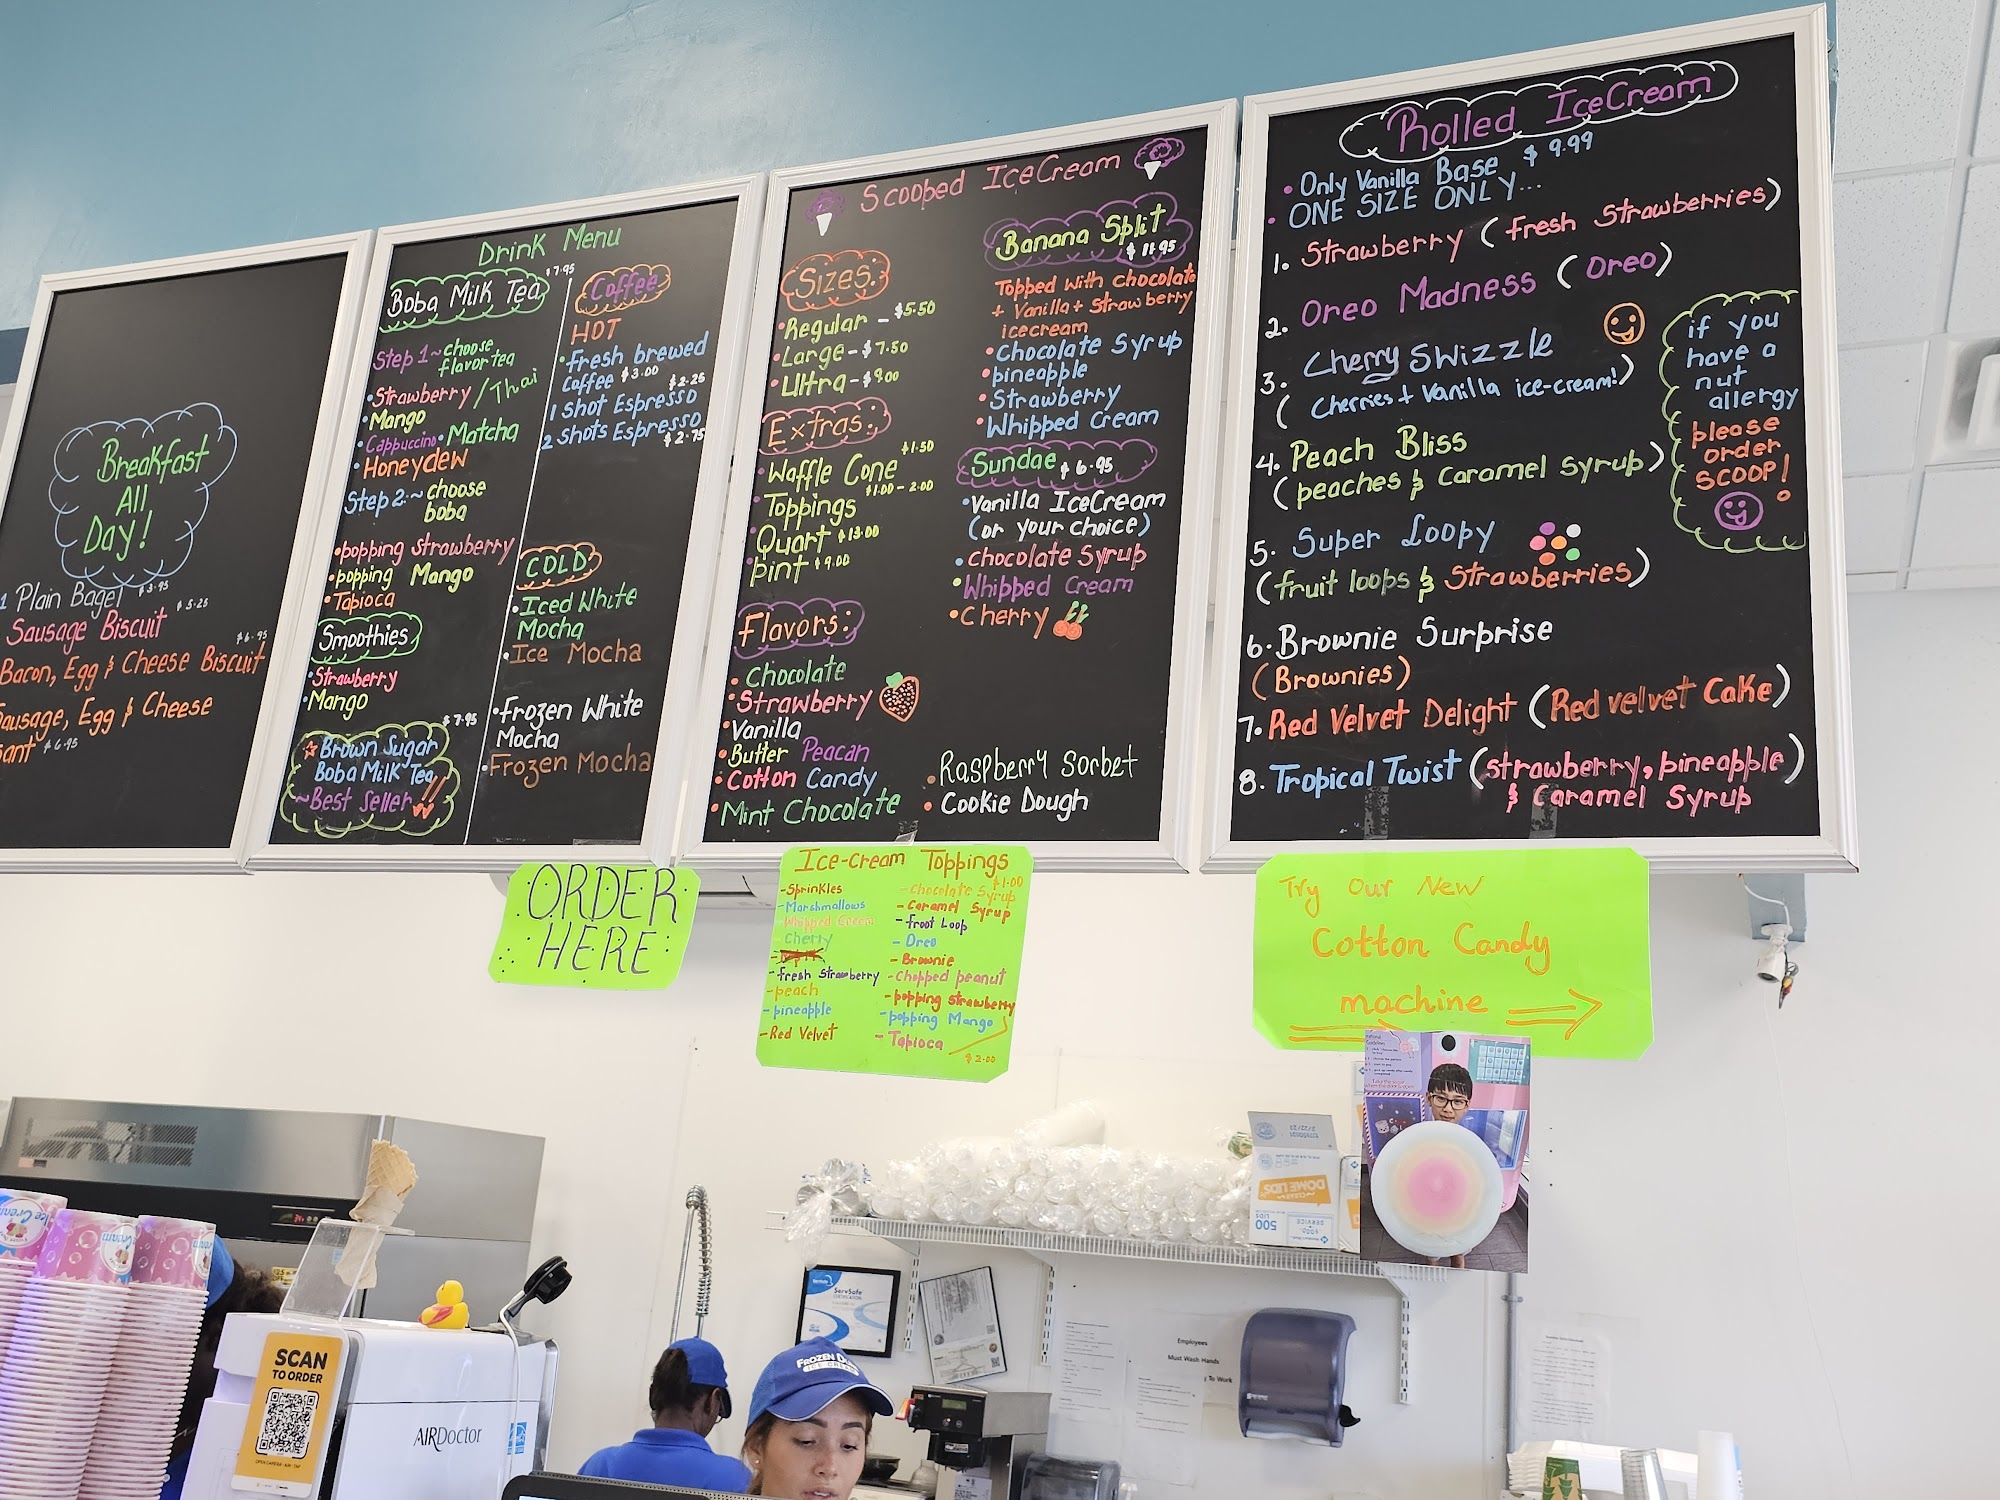 Breakfast
All
Day!
Plain Bagel $3.95
Sausage Biscuit $5.25
Bacon, Egg & Cheese Biscuit $6.95
Sausage, Egg & Cheese
$6.95
Drink Menu
Boba Milk Tea $7.95
Step 1~ choose
flavor tea
• Strawberry / Thai
• Mango
• Cappuccino • Matcha
• Honeydew
Step 2~ choose
boba
• popping strawberry
• popping Mango
• Tapioca
Smoothies
• Strawberry
• Mango
$7.95
☆ Brown Sugar
Boba Milk Tea
~Best Seller!!
Coffee
HOT
• Fresh brewed
Coffee $3.00
$2.25
1 shot Espresso
2 shots Espresso
$2.75
COLD
• Iced White
Mocha
• Ice Mocha
• Frozen White
Mocha
• Frozen Mocha
Scooped IceCream
Sizes:
• Regular - $5.50
• Large - $7.50
• Ultra - $9.00
Extras:
Waffle Cone $1.50
• Toppings $1.00 - 2.00
• Quart $13.00
• pint $9.00
Flavors:
• Chocolate
• Strawberry
• Vanilla
• Butter Peacan
• Cotton Candy
• Mint Chocolate
Banana Split
$11.95
Topped with chocolate
+ Vanilla + Strawberry
icecream
• Chocolate Syrup
• pineapple
• Strawberry
• Whipped Cream
Sundae $6.95
• Vanilla IceCream
(or your choice)
• Chocolate Syrup
• Whipped Cream
• Cherry
• Raspberry Sorbet
• Cookie Dough
Rolled IceCream
• Only Vanilla Base $9.99
• ONE SIZE ONLY...
1. Strawberry (fresh strawberries)
2. Oreo Madness (Oreo)
3. Cherry Swizzle
(Cherries + Vanilla ice-cream!)
4. Peach Bliss
(peaches & Caramel Syrup)
5. Super Loopy
(fruit loops & Strawberries)
6. Brownie Surprise
(Brownies)
7. Red Velvet Delight (Red velvet Cake)
8. Tropical Twist (strawberry, pineapple)
& Caramel Syrup
if you
have a
nut
allergy
please
order
SCOOP!
ORDER
HERE
Ice-cream Toppings
$1.00
- Sprinkles
- Marshmallows
- Whipped Cream
- Cherry
- Fresh Strawberry
- peach
- pineapple
- Red Velvet
- Chocolate Syrup
- Caramel Syrup
- Froot Loop
- Oreo
- Brownie
- Chopped peanut
- popping strawberry
- popping Mango
- Tapioca
$2.00
Try our New
Cotton Candy
machine
DOME LIDS
500
LIDS
ServSafe
CERTIFICATION
Employees
Must Wash Hands
To Work
SCAN
TO ORDER
AIRDoctor
FROZEN
ICE CREAM